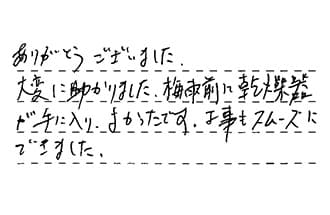 ありがとうございました.
大変に助かりました.梅雨前に乾燥器
が手に入り、よかったです.工事もスムーズに
できました.